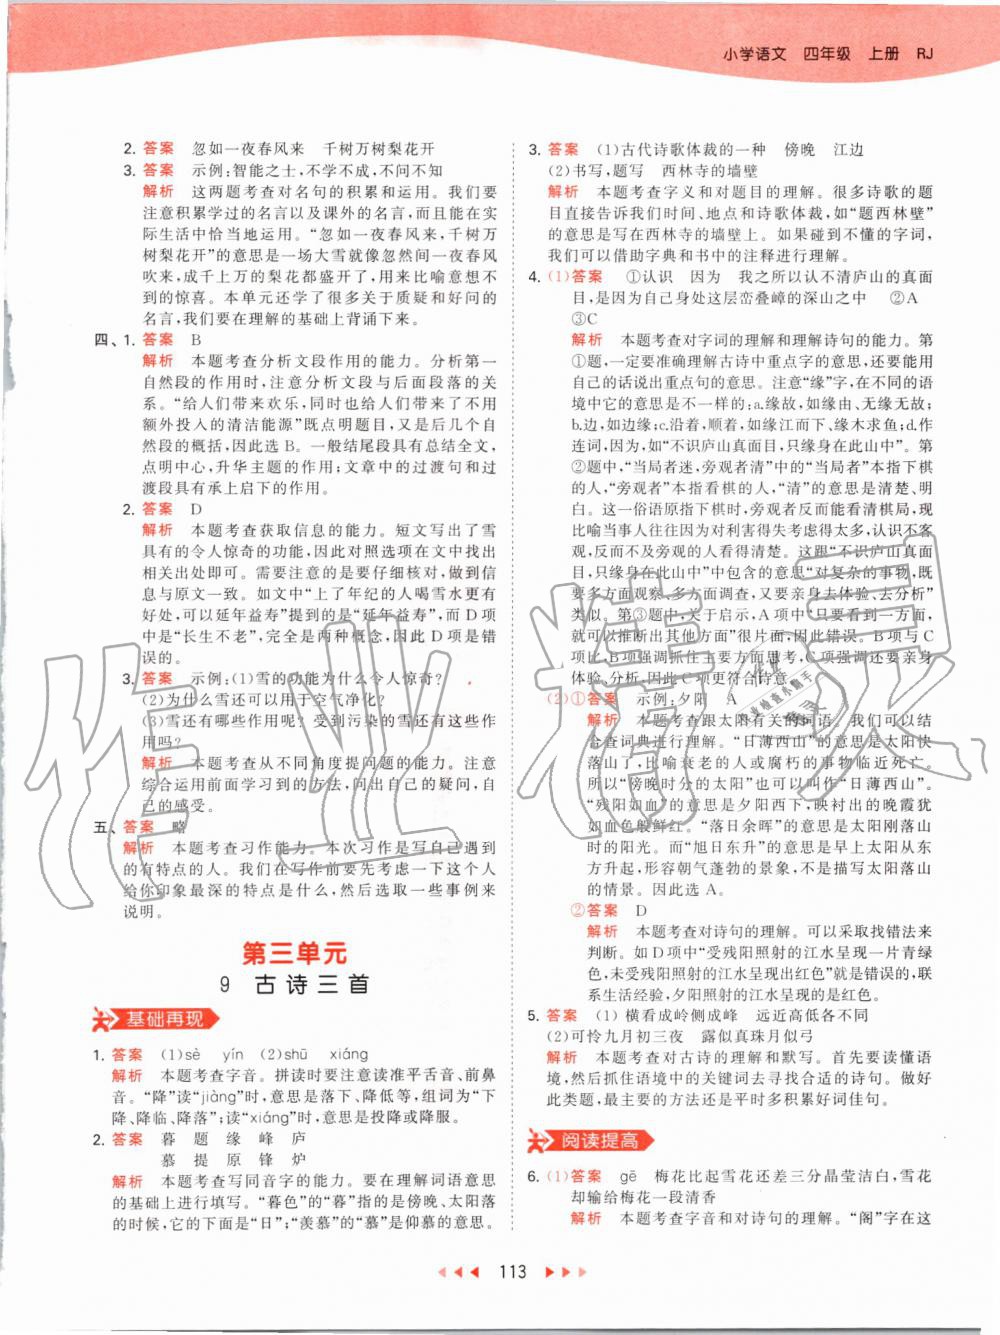 小学语文 四年级 上册 RJ
2. 答案 忽如一夜春风来 千树万树梨花开
3. 答案 示例:智能之士,不学不成,不问不知
解析 这两题考查对名句的积累和运用。我们要
注意积累学过的名言以及课外的名言,而且能够在
实际生活中恰当地运用。“忽如一夜春风来,千树万
树梨花开”的意思是一场大雪就像忽然间一夜春风
吹来,成千上万的梨花都盛开了,用来比喻意想不到
的惊喜。本单元还学了很多关于质疑和好问的
名言,我们要在理解的基础上背诵下来。
四、1. 答案 B
解析 本题考查分析文段作用的能力。分析第一
自然段的作用时,注意分析文段与后面段落的关
系。“给人们带来欢乐,同时也给人们带来了不用
额外投入的清洁能源”既点明题目,又是后几个自
然段的概括,因此选 B。一般结尾段具有总结全文,
点明中心,升华主题的作用;文章中的过渡句和过
渡段具有承上启下的作用。
2. 答案 D
解析 本题考查获取信息的能力。短文写出了雪
具有的令人惊奇的功能,因此对照选项在文中找出
相关出处即可。需要注意的是要仔细核对,做到信
息与原文一致。如文中“上了年纪的人喝雪水更有
好处,可以延年益寿”提到的是“延年益寿”,而 D 项
中是“长生不老”,完全是两种概念,因此 D 项是错
误的。
3. 答案 示例:(1)雪的功能为什么令人惊奇?
(2)为什么雪还可以用于空气净化?
(3)雪还有哪些作用呢?受到污染的雪还有这些作
用吗?
解析 本题考查从不同角度提问题的能力。注意
综合运用前面学习到的方法,提出自己的疑问,及自
己的感受。
五、答案 略
解析 本题考查习作能力。本次习作是写自己遇到
的有特点的人。我们在写作前要先考虑一下这个人
给你印象最深的特点是什么,然后选取一些事例来
说明。
第三单元
9 古诗三首
基础再现
1. 答案 (1)sè yín (2)shū xiáng
解析 本题考查字音。拼读时要注意读准平舌音、前鼻
音。“降”读“jiàng”时,意思是落下、降低等,组词为“下
降、降临、降落”;读“xiáng”时,意思是投降或降服。
2. 答案 暮 题 缘 峰 庐
慕 提 原 锋 炉
解析 本题考查写同音字的能力。要在理解词语意思
的基础上进行填写。“暮色”的“暮”指的是傍晚、太阳落
的时候,它的下面是“日”;“羡慕”的“慕”是仰慕的意思。
3. 答案 (1)古代诗歌体裁的一种 傍晚 江边
(2)书写,题写 西林寺的墙壁
解析 本题考查字义和对题目的理解。很多诗歌的题
目直接告诉我们时间、地点和诗歌体裁,如“题西林壁”
的意思是写在西林寺的墙壁上。如果碰到不懂的字词,
我们可以借助字典和书中的注释进行理解。
4. (1)答案 ①认识 因为 我之所以认不清庐山的真面
目,是因为自己身处这层峦叠嶂的深山之中 ②A
③C
解析 本题考查对字词的理解和理解诗句的能力。第
①题,一定要准确理解古诗中重点字的意思,还要能用
自己的话说出重点句的意思。注意“缘”字,在不同的语
境中它的意思是不一样的:a.缘故,如缘由、无缘无故;
b.边,如边缘;c.沿着,顺着,如缘江而下、缘木求鱼;d.作
连词,因为,如“不识庐山真面目,只缘身在此山中”。第
②题中,“当局者迷,旁观者清”中的“当局者”本指下棋
的人,“旁观者”本指看棋的人,“清”的意思是清楚、明
白。这一俗语原指下棋时,旁观者反而能看清局势,现
比喻当事人往往因为对利害得失考虑得太多,认识不客
观,反而不及旁观的人看得清楚。这跟“不识庐山真面
目,只缘身在此山中”中包含的意思“对复杂的事物,既
要多方面观察、多方面调查,又要亲身去体验、去分析”
类似。第③题中,关于启示,A 项中“只要看到一方面,
就可以推断出其他方面”很片面,因此错误。B 项与 C
项比,B 项强调抓住主要方面思考,C 项强调还要亲身
体验,去分析,因此 C 项更符合诗意。
(2)①答案 示例:夕阳 A
解析 本题考查跟太阳有关的词语。我们可以结
合查词典进行理解。“日薄西山”的意思是太阳快
落山了,比喻衰老的人或腐朽的事物临近死亡。
所以“傍晚时分的太阳”也可以叫作“日薄西山”。
“残阳如血”的意思是夕阳西下,映衬出的晚霞犹
如血色般鲜红。“落日余晖”的意思是太阳刚落山
时的阳光。而“旭日东升”的意思是太阳刚从东方
升起,形容朝气蓬勃的景象,不是描写太阳落山
的情景。因此选 A。
②答案 D
解析 本题考查对诗句的理解。可以采取找错法来
判断。如 D 项中“受残阳照射的江水呈现一片青绿
色,未受残阳照射的江水呈现出红色”是错误的。联
系生活经验,夕阳照射的江水呈现的是红色。
5. 答案 (1) 横看成岭侧成峰 远近高低各不同
(2)可怜九月初三夜 露似真珠月似弓
解析 本题考查对古诗的理解和默写。首先要读懂语
境,然后抓住语境中的关键词去寻找合适的诗句。做好
此类题,最主要的方法还是平时多积累好词佳句。
阅读提高
6. (1)答案 gē 梅花比起雪花还差三分晶莹洁白,雪花
却输给梅花一段清香
解析 本题考查字音和对诗句的理解。“阁”字在这
113